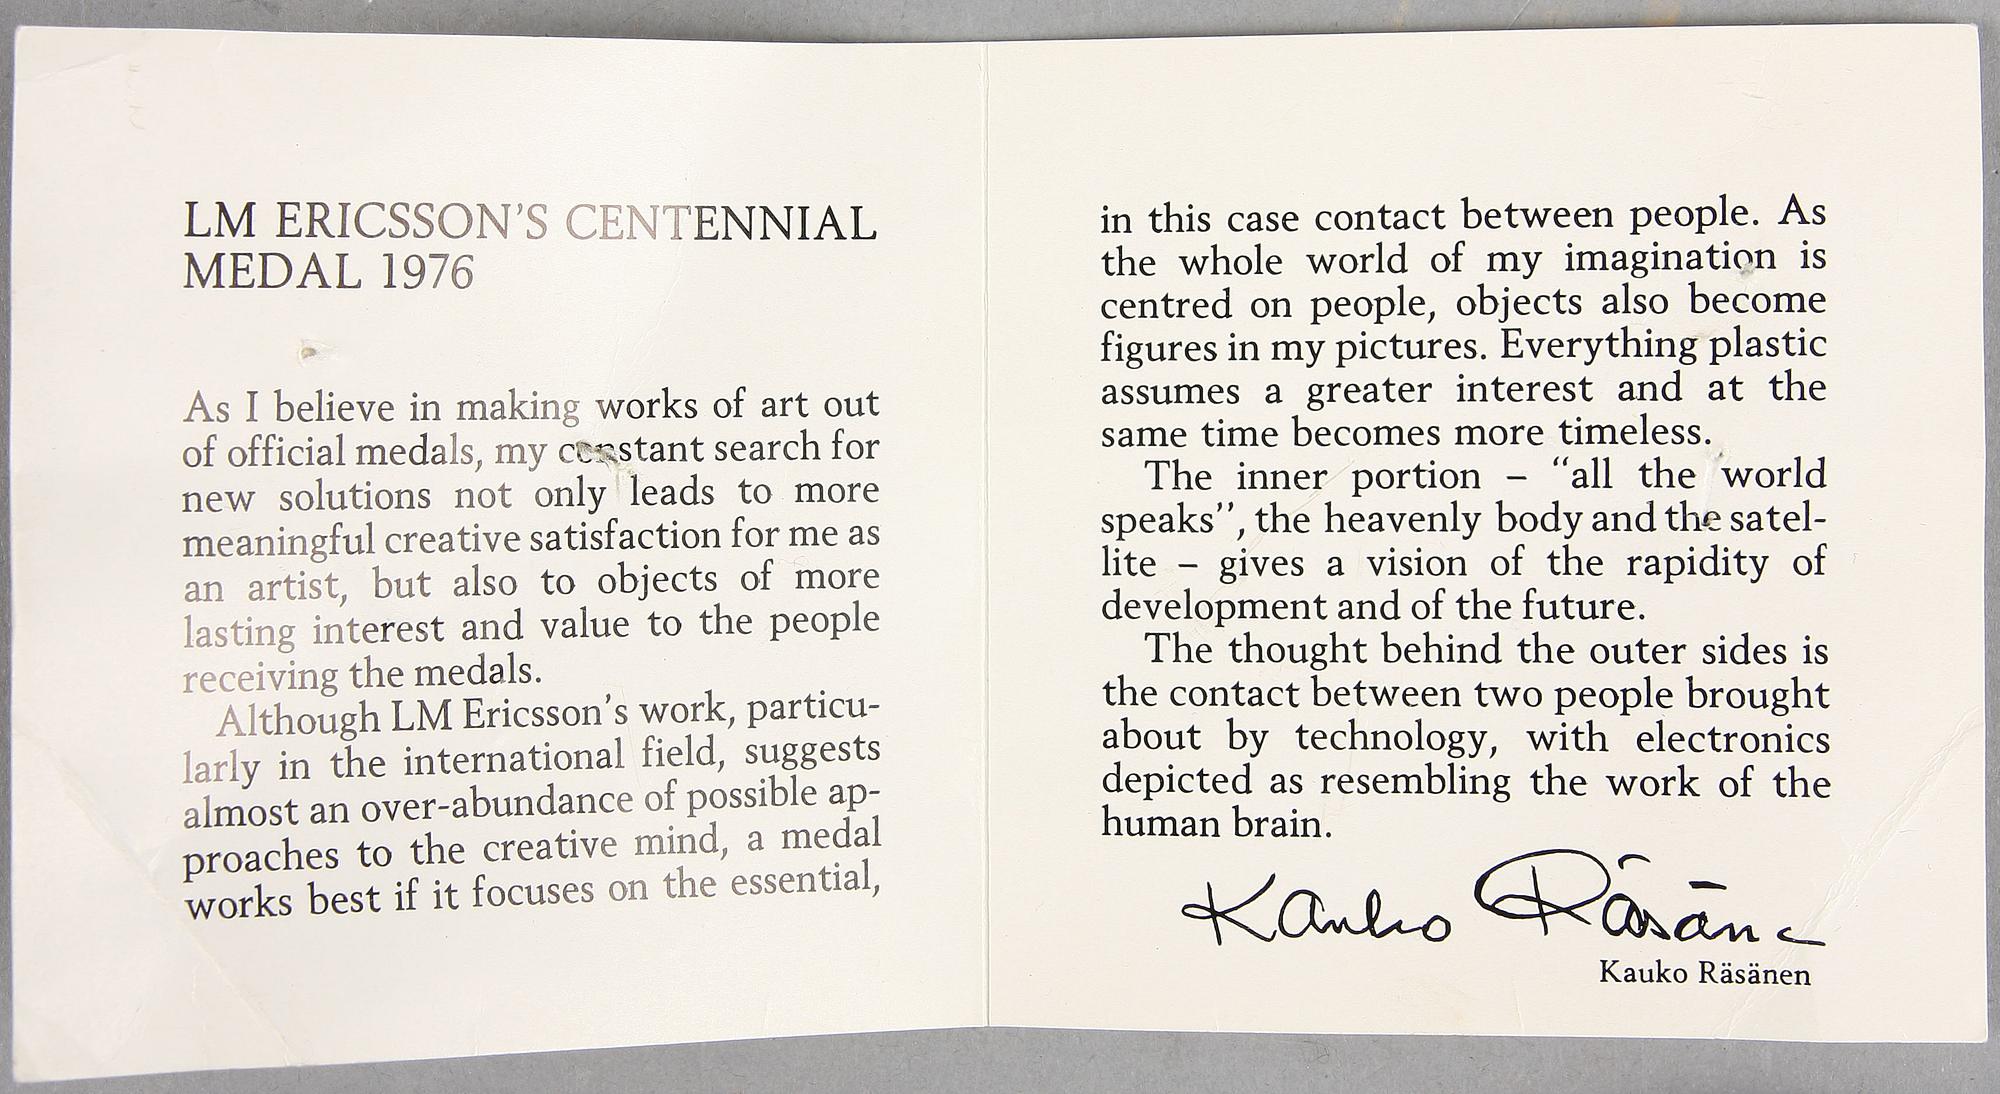 LM ERICSSON'S CENTENNIAL
MEDAL 1976
As I believe in making works of art out
of official medals, my constant search for
new solutions not only leads to more
meaningful creative satisfaction for me as
an artist, but also to objects of more
lasting interest and value to the people
receiving the medals.
Although LM Ericsson's work, particu-
larly in the international field, suggests
almost an over-abundance of possible ap-
proaches to the creative mind, a medal
works best if it focuses on the essential,
in this case contact between people. As
the whole world of my imagination is
centred on people, objects also become
figures in my pictures. Everything plastic
assumes a greater interest and at the
same time becomes more timeless.
The inner portion – “all the world
speaks”, the heavenly body and the satel-
lite – gives a vision of the rapidity of
development and of the future.
The thought behind the outer sides is
the contact between two people brought
about by technology, with electronics
depicted as resembling the work of the
human brain.
Kauko Räsänen
Kauko Räsänen